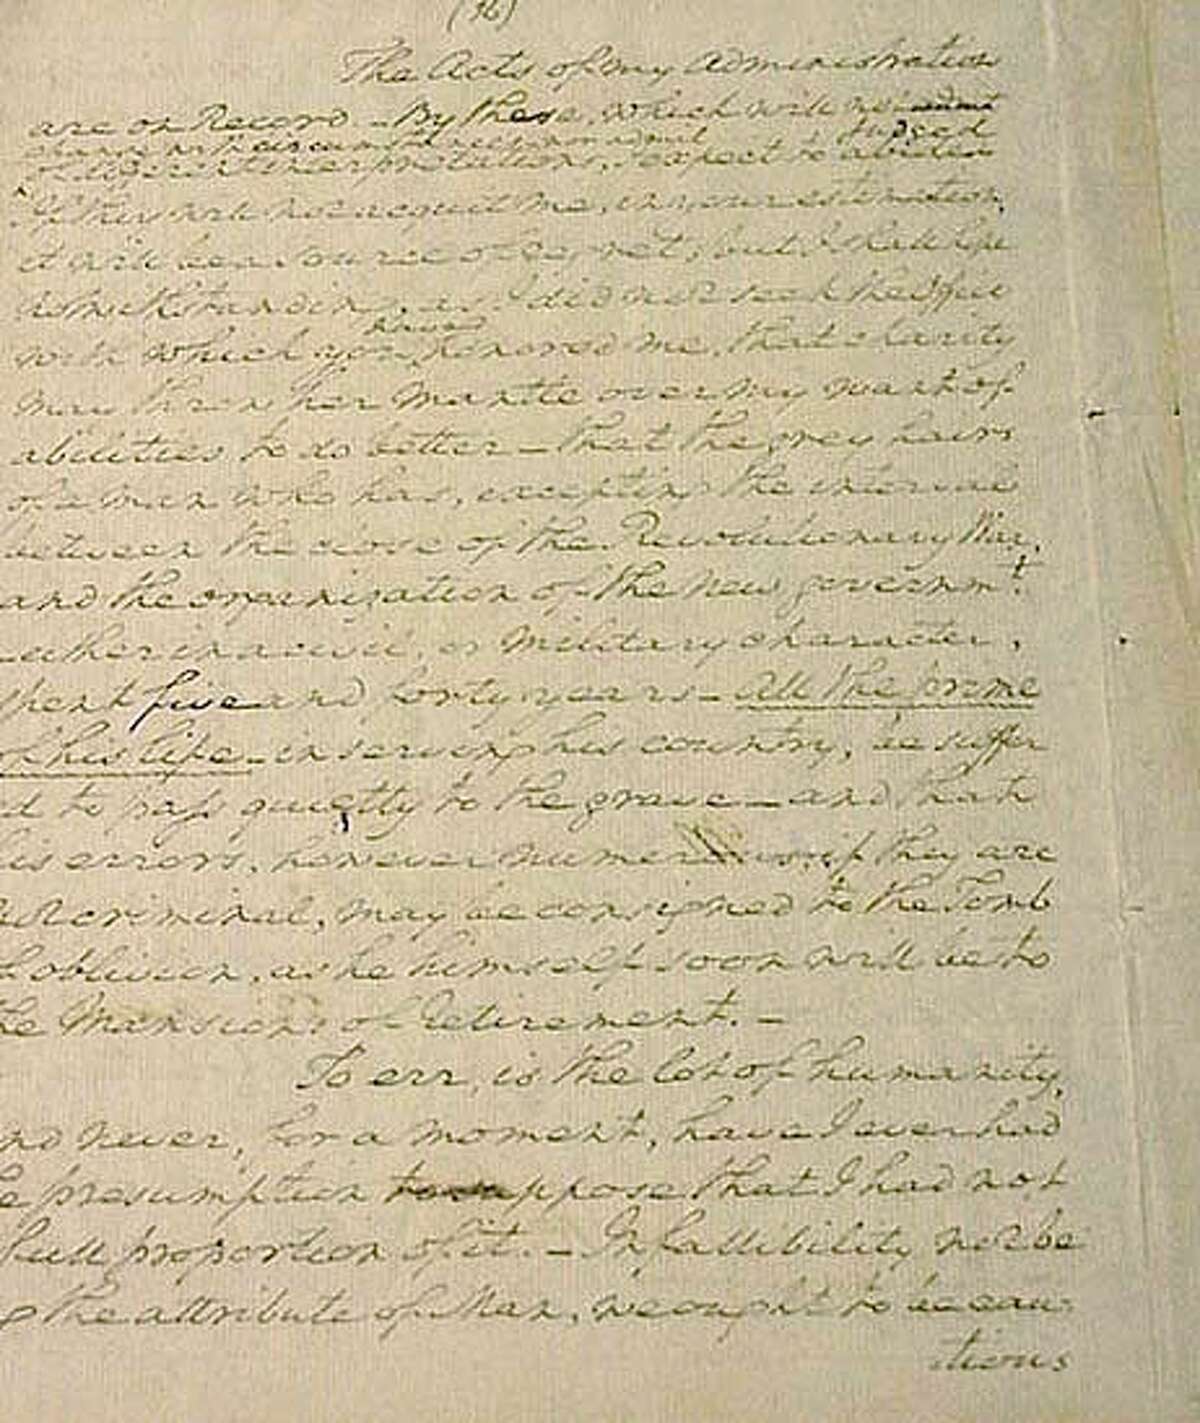 (16)
The Acts of my Administration
are on Record. - By these, which will not admit
change with circumstances, nor admit judged
of different interpretations, I expect to abide
If this will not acquit me, in your estimation,
it will be a source of regret; but I shall hope
notwithstanding, as I did not seek the Office
have
with which you honored me, that charity
may throw her mantle over my want of
abilities to do better - that the grey hairs
of a man who has, excepting the interval
between the close of the Revolutionary War,
and the organization of the new governmt.
either in a civil, or Military character,
spent five and forty years - All the prime
of his life - in serving his country, be suffer
ed to pass quietly to the grave - and that
his errors, however numerous, if they are
not criminal, may be consigned to the Tomb
of oblivion, as he himself soon will be to
the Mansions of Retirement. -
To err, is the lot of humanity,
and never, for a moment, have I ever had
he presumption to suppose that I had not
full proportion of it. - Infallibility not be
g the attribute of Man, we ought to be cau-
tious